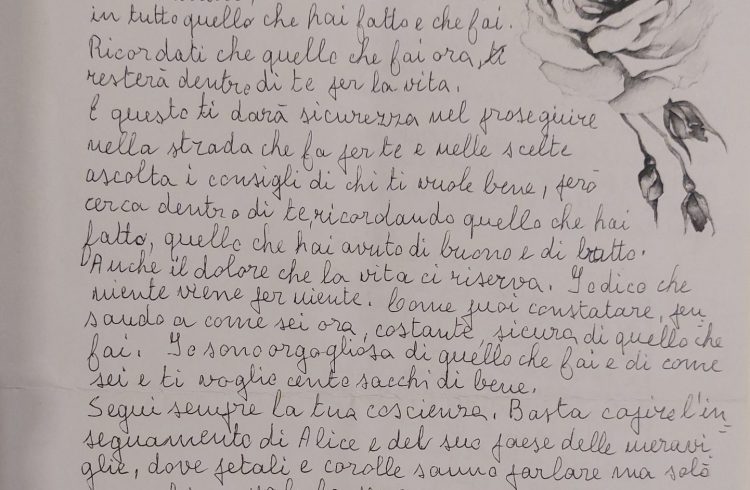 in tutto quello che hai fatto e che fai.
Ricordati che quello che fai ora, ti
resterà dentro di te per la vita.
E questo ti darà sicurezza nel proseguire
nella strada che fa per te e nelle scelte
ascolta i consigli di chi ti vuole bene, però
cerca dentro di te, ricordando quello che hai
fatto, quello che hai avuto di buono e di brutto.
Anche il dolore che la vita ci riserva. Io dico che
niente viene per niente. Come puoi constatare, pen
sando a come sei ora, costante, sicura di quello che
fai. Io sono orgogliosa di quello che fai e di come
sei e ti voglio cento sacchi di bene.
Segui sempre la tua coscienza. Basta capire l'in
segnamento di Alice e del suo paese delle meravi
glie, dove petali e corolle sanno parlare ma solo